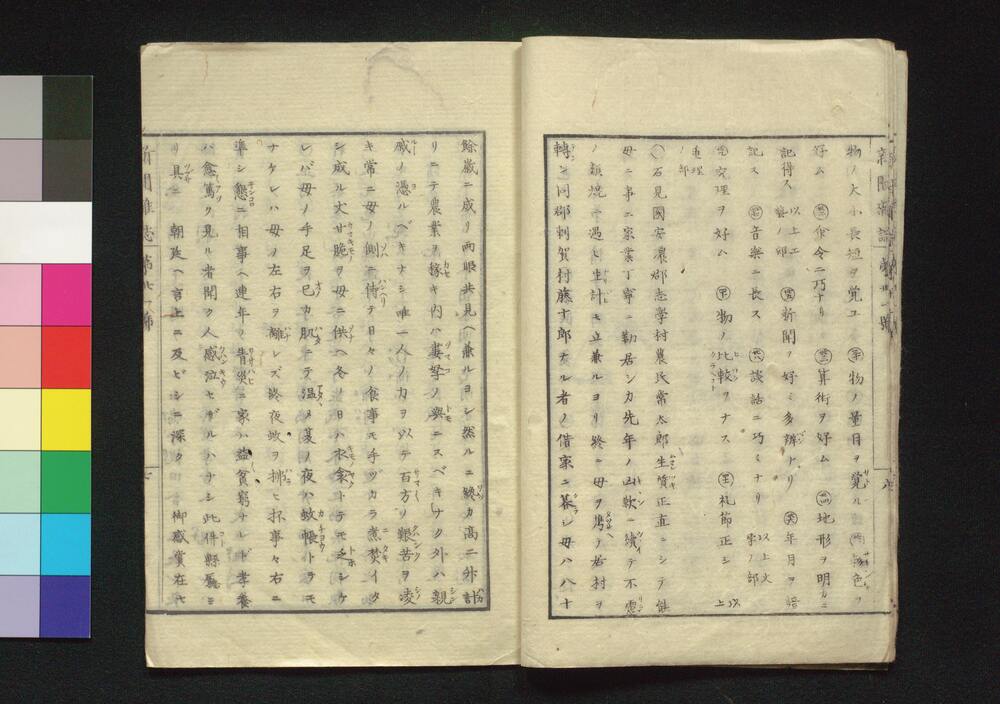 物ノ大小長短ヲ覚ユ 物ノ量目ヲ覚ル
好ム 命令ニ巧ナリ 算術ヲ好ム 地形ヲ明カニ
記得ス 以上工 藝ノ部 新聞ヲ好ミ多辨ナリ 年月ヲ諳
記ス 音樂ニ長ス 談話ニ巧ミナリ 以上文 学ノ部
究理ヲ好ム 物ノ比較ヲナス 礼節正シ 以上
道理ノ部
〇石見國安濃郡志学村農民常太郎生質正直ニシテ能
母ニ事ニ家業丁寧ニ勤居シカ先年ノ凶歉ニ續テ不慮
ノ類焼ニ遇ヒ生計モ立兼ルヨリ終ニ母ヲ携ヘ若村ヲ
轉シ同郡刺賀村藤十郎ナル者ノ借家ニ暮シ母ハ八十
餘歳ニ成リ両眼共見ヘ兼ルヨシ然ルニ終カ高ニ外計
リニテ農業ヲ稼キ内ハ妻孥ノ輿ニスベキナク外ハ親
戚ノ憑ルベキナシ唯一人ノ力ヲ以テ百方リ艱苦ヲ凌
キ常ニ母ノ側ニ侍テ日々ノ食事モ手ヅカラ煮焚イタ
シ成ル丈甘脆ヲ母ニ供ヘ冬ノ日ハ衣衾トテモ乏シケ
レバ母ノ手足ヲ己カ肌ニテ温メ夏ノ夜ハ蚊帳トテモ
ナケレハ母ノ左右ヲ離レズ終夜蚊ヲ拂ヒ抔事々右ニ
準シ懇ニ相事ヘ連年ノ眚災ニ家ハ益貧窮ナレド孝養
ハ愈篤ク見ル者聞ク人感泣セザルハナシ此件縣廳ヨ
リ具ニ 朝廷ヘ言上ニ及ビシニ深ク 御感賞在セ
新聞雜誌 第廿一號